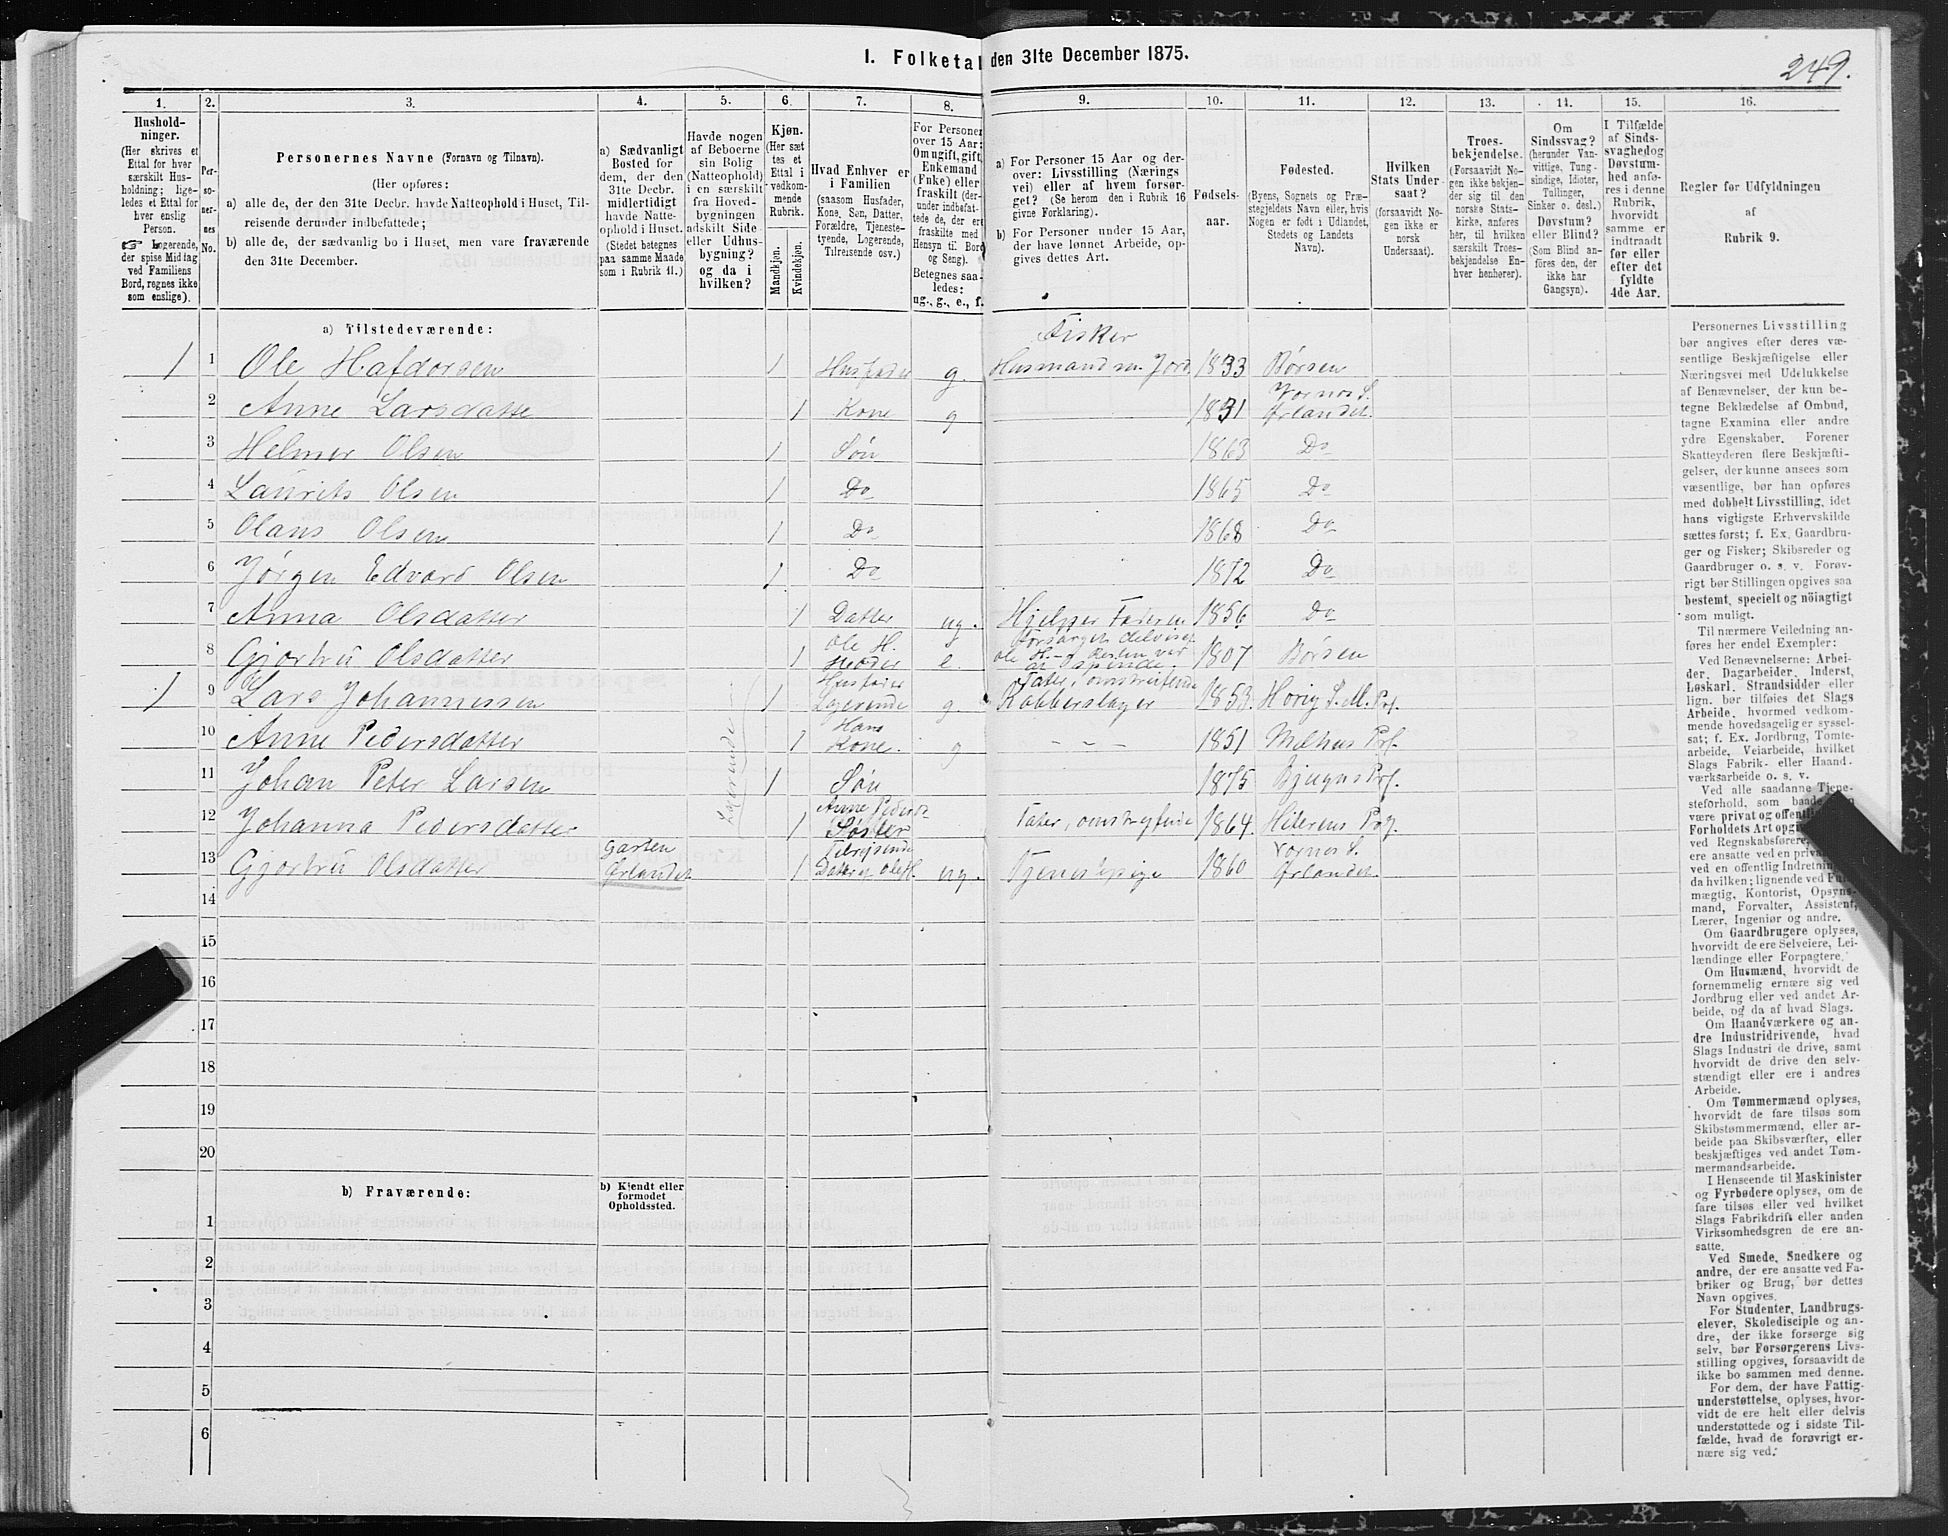 249.
I. Folketal den 31te December 1875.
1. 2. 3. 4. 5. 6. 7. 8. 9. 10. 11. 12. 13. 14. 15. 16.
Hushold-
ninger.
(Her skrives et
Ettal for hver
særskilt Hus-
holdning; lige-
ledes et Ettal for
hver enslig
Person.
☞ Logerende,
der spise Middag
ved Familiens
Bord, regnes ikke
som enslige).
Per-
so-
ner-
nes
No.
Personernes Navne (Fornavn og Tilnavn).
(Her opføres:
a) alle de, der den 31te Decbr. havde Natteophold i Huset, Til-
reisende derunder indbefattede;
b) alle de, der sædvanlig bo i Huset, men vare fraværende
den 31te December.
a) Sædvanligt
Bosted for
dem, der den
31te Decbr.
midlertidigt
havde Natte-
ophold i Huset.
(Stedet betegnes
paa samme Maade
som i Rubrik 11.)
Havde nogen
af Beboerne
sin Bolig
(Natteophold)
i en særskilt
fra Hoved-
bygningen
adskilt Side-
eller Udhus-
bygning?
og da i
hvilken?
Kjøn.
(Her sæt-
tes et
Ettal i
vedkom-
mende
Rubrik.
Mandkjøn.
Kvindekjøn.
Hvad Enhver er
i Familien
(saasom Husfader,
Kone, Søn, Datter,
Forældre, Tjeneste-
tyende, Logerende,
Tilreisende osv.)
For Personer
over 15 Aar:
Om ugift, gift,
Enkemand
(Enke) eller
fraskilt (der-
under indbefat-
tede de, der ere
fraskilte med
Hensyn til Bord
og Seng).
Betegnes saa-
ledes:
ug., g., e., f.
a) For Personer 15 Aar og der-
over: Livsstilling (Nærings
vei) eller af hvem forsør-
get? (Se herom den i Rubrik 16
givne Forklaring).
b) For Personer under 15 Aar,
der have lønnet Arbeide, op-
gives dettes Art.
Fødsels-
aar.
Fødested.
(Byens, Sognets og Præ-
stegjeldets Navn eller, hvis
Nogen er født i Udlandet,
Stedets og Landets
Navn).
Hvilken
Stats Under-
saat?
(forsaavidt No-
gen ikke er
norsk
Undersaat).
Troes-
bekjendelse.
(Forsaavidt No-
gen ikke bekjen-
der sig til den
norske Stats-
kirke, anføres
her, til hvilken
særskilt Troes-
bekjendelse En-
hver henhører).
Om
Sindssvag?
(herunder Van-
vittige, Tung-
sindige, Idioter,
Tullinger,
Sinker o. desl.)
Døvstum?
eller Blind?
(Som Blind an-
føres den, der
ikke har
Gangsyn).
I Tilfælde
af Sinds-
svaghed og
Døvstum-
hed anfø-
res i denne
Rubrik,
hvorvidt
samme er
indtraadt
før eller
efter det
fyldte
4de Aar.
Regler for Udfyldningen
af
Rubrik 9.
a) Tilstedeværende:
Fisker
1 1 Ole Hafdorsen 1 Husfader g. Husmand m. Jord 1833 Børsen
2 Anne Larsdatte 1 Kone g 1831 Vornes S. Ørlandet.
3 Helmer Olsen 1 Søn 1863 Do
4 Laurits Olsen 1 Do 1865 Do
5 Olaus Olsen 1 Do 1868 Do
6 Jørgen Edvard Olsen 1 Do 1872 Do
7 Anna Olsdatter 1 Datter ug. Hjelper Faderen 1856 Do
8 Gjertru Olsdatter 1 Ole H. Moder e. Forsørges delvis af Ole H. 1807 Børsen
1 9 Lars Johannessen 1 Husfader Logerende g Tater, omstreifende Kobberslager 1853. Horig S. M. Prg.
10 Anne Pedersdatter 1 Hans Kone. g - - - 1851 Melhus Prg.
11 Johan Peter Larsen 1 Søn 1875 Bjugns Prg.
12 Johanna Pedersdatter 1 Anne Pedersd. Søster Tater, omstreifende 1864. Hiterens Prg.
13 Gjertru Olsdatter Garten Ørlandet 1 Tilreisende Datter af Ole H. ug. Tjenestepige 1860 Vornes S. Ørlandet.
Logerende
14
15
16
17
18
19
20
b) Fraværende:
b) Kjendt eller
formodet
Opholdssted.
1
2
3
4
5
6
Personernes Livsstilling
bør angives efter deres væ-
sentlige Beskjæftigelse eller
Næringsvei med Udelukkelse
af Benævnelser, der kun be-
tegne Beklædelse af Ombud,
tagne Examina eller andre
ydre Egenskaber. Forener
Skatteyderen flere Beskjæfti-
gelser, der kunne ansees som
væsentlige, bør han opføres
med dobbelt Livsstilling, idet
hans vigtigste Erhvervskilde
sættes først; f. Ex. Gaardbru-
ger og Fisker; Skibsreder og
Gaardbruger o. s. v. Forøv-
rigt bør Stillingen opgives saa
bestemt, specielt og nöiagtigt
som muligt.
Til nærmere Veiledning an-
føres her endel Exempler:
Ved Benævnelserne: Arbei-
der, Dagarbeider, Inderst,
Løskarl, Strandsidder eller
lign. bør tilføies det Slags
Arbeide, hvormed vedkom-
mende hovedsagelig er syssel-
sat; f. Ex. Jordbrug, Tomte-
arbeide, Veiarbeide, hvilket
Slags Fabrik- eller Haand-
værksarbeide o. s. v.
Ved alle saadanne Tjene-
steforhold, som baade
være privat og offentlig
Forholdets Art opgiv
ved Regnskabsførere,
ere ansatte ved en priva
ved en offentlig Indretning
da hvilken; lignende ved Fuld-
mægtig, Kontorist, Opsyns-
mand, Forvalter, Assistent,
Lærer, Ingeniør og andre.
Om Gaardbrugere oplyses,
hvorvidt de ere Selveiere, Lei-
lændinge eller Forpagtere.
Om Husmænd, hvorvidt de
fornemmelig ernære sig ved
Jordbrug eller ved andet Ar-
beide, og da af hvad Slags.
Om Haandværkere og an-
dre Industridrivende, hvad
Slags Industri de drive, samt
hvorvidt de drive den selv-
stændigt eller ere i andres
Arbeide.
Om Tømmermænd oplyses,
hvorvidt de fare tilsøs som
Skibstømmermænd, eller ar-
beide paa Skibsværfter, eller
beskjæftiges ved andet Tøm-
mermandsarbeide.
I Henseende til Maskinister
og Fyrbødere oplyses, om de
fare tilsøs eller ved hvilket
Slags Fabrikdrift eller anden
Virksomhedsgren de ere an-
satte.
Ved Smede, Snedkere og
andre, der ere ansatte ved Fa-
briker og Brug, bør dettes
Navn opgives.
For Studenter, Landbrugs-
elever, Skoledisciple og an-
dre, der ikke forsørge sig
selv, bør Forsørgerens Livs-
stilling opgives, forsaavidt de
ikke bo sammen med denne.
For dem, der have Fattig-
understøttelse, oplyses, hvor-
vidt de ere helt eller delvis
understøttede og i sidste Til-
fælde, hvad de forøvrigt er-
nære sig ved.